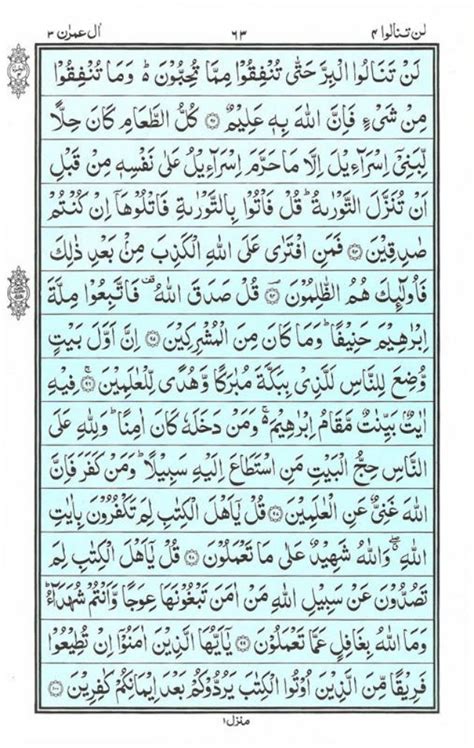 لن تنالوا ۴ ٦٣ اٰل عمرٰن ۳
لَنْ تَنَالُوا الْبِرَّ حَتّٰى تُنْفِقُوْا مِمَّا تُحِبُّوْنَ ؕ وَمَا تُنْفِقُوْا
مِنْ شَىْءٍ فَاِنَّ اللّٰهَ بِهٖ عَلِيْمٌ ﴿۹۲﴾ كُلُّ الطَّعَامِ كَانَ حِلًّا
لِّبَنِىْٓ اِسْرَآءِيْلَ اِلَّا مَا حَرَّمَ اِسْرَآءِيْلُ عَلٰى نَفْسِهٖ مِنْ قَبْلِ
اَنْ تُنَزَّلَ التَّوْرٰىةُ ؕ قُلْ فَاْتُوْا بِالتَّوْرٰىةِ فَاتْلُوْهَاۤ اِنْ كُنْتُمْ
صٰدِقِيْنَ ﴿۹۳﴾ فَمَنِ افْتَرٰى عَلَى اللّٰهِ الْكَذِبَ مِنْۢ بَعْدِ ذٰلِكَ
فَاُولٰٓئِكَ هُمُ الظّٰلِمُوْنَ ﴿۹۴﴾ قُلْ صَدَقَ اللّٰهُ ۟ فَاتَّبِعُوْا مِلَّةَ
اِبْرٰهِيْمَ حَنِيْفًا ؕ وَمَا كَانَ مِنَ الْمُشْرِكِيْنَ ﴿۹۵﴾ اِنَّ اَوَّلَ بَيْتٍ
وُّضِعَ لِلنَّاسِ لَلَّذِىْ بِبَكَّةَ مُبٰرَكًا وَّهُدًى لِّلْعٰلَمِيْنَ ﴿۹۶﴾ فِيْهِ
اٰيٰتٌۢ بَيِّنٰتٌ مَّقَامُ اِبْرٰهِيْمَ ۚ وَمَنْ دَخَلَهٗ كَانَ اٰمِنًا ؕ وَلِلّٰهِ عَلَى
النَّاسِ حِجُّ الْبَيْتِ مَنِ اسْتَطَاعَ اِلَيْهِ سَبِيْلًا ؕ وَمَنْ كَفَرَ فَاِنَّ
اللّٰهَ غَنِىٌّ عَنِ الْعٰلَمِيْنَ ﴿۹۷﴾ قُلْ يٰۤاَهْلَ الْكِتٰبِ لِمَ تَكْفُرُوْنَ بِاٰيٰتِ
اللّٰهِ ۖ وَاللّٰهُ شَهِيْدٌ عَلٰى مَا تَعْمَلُوْنَ ﴿۹۸﴾ قُلْ يٰۤاَهْلَ الْكِتٰبِ لِمَ
تَصُدُّوْنَ عَنْ سَبِيْلِ اللّٰهِ مَنْ اٰمَنَ تَبْغُوْنَهَا عِوَجًا وَّاَنْتُمْ شُهَدَآءُ ؕ
وَمَا اللّٰهُ بِغَافِلٍ عَمَّا تَعْمَلُوْنَ ﴿۹۹﴾ يٰۤاَيُّهَا الَّذِيْنَ اٰمَنُوْۤا اِنْ تُطِيْعُوْا
فَرِيْقًا مِّنَ الَّذِيْنَ اُوْتُوا الْكِتٰبَ يَرُدُّوْكُمْ بَعْدَ اِيْمَانِكُمْ كٰفِرِيْنَ ﴿۱۰۰﴾
منزل ۱